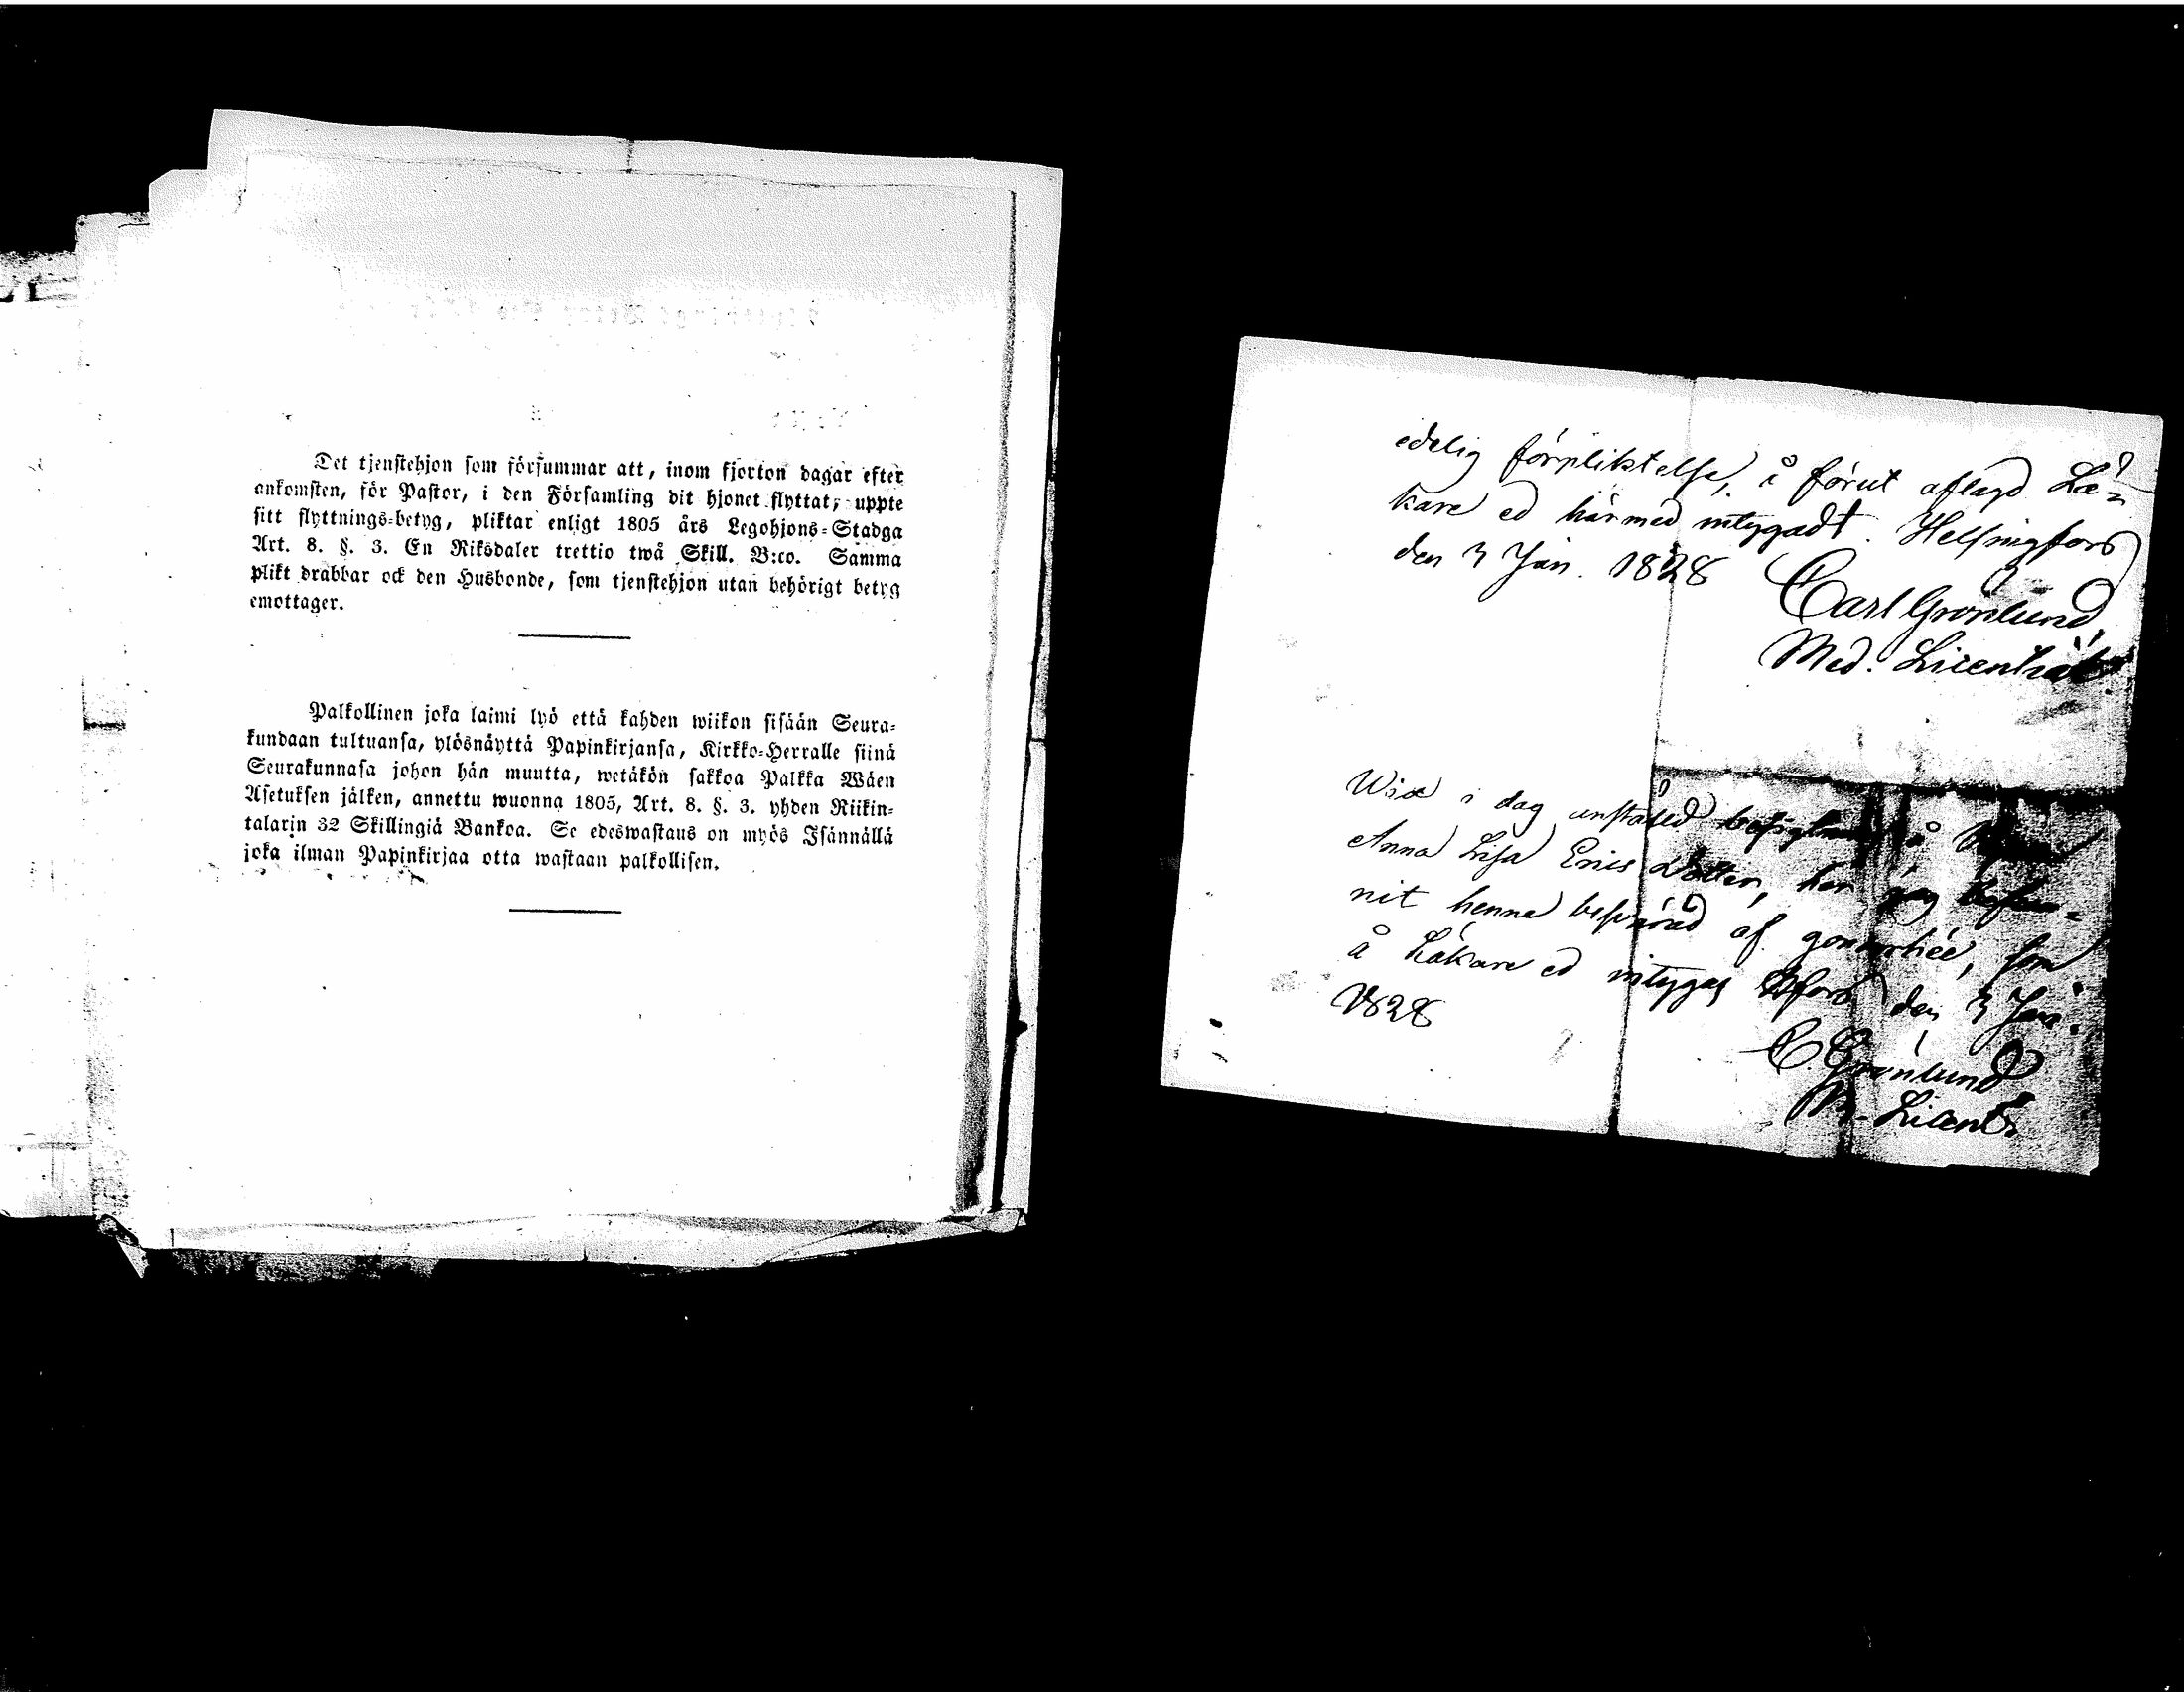 Det tjenstehjon som försummar att, inom fjorton dagar efter
ankomsten, för Pastor, i den Församling dit hjonet flyttat, uppte
sitt flyttnings-betyg, pliktar enligt 1805 års Legohjons-Stadga
Art. 8. §. 3. En Riksdaler trettio twå Skill. B:co. Samma
plikt drabbar ock den Husbonde, som tjenstehjon utan behörigt betyg
emottager.
Palkollinen joka laimi lyö että kahden wiikon sisään Seura-
kundaan tultuansa, ylösnäyttä Papinkirjansa, Kirkko-Herralle siinä
Seurakunnasa johon hän muutta, wetäkön sakkoa Palkka Wäen
Asetuksen jälken, annettu wuonna 1805, Art. 8. §. 3. yhden Riikin-
talarin 32 Skillingiä Bankoa. Se edeswastaus on myös Isännällä
joka ilman Papinkirjaa otta wastaan palkollisen.
edelig förpliktelse, å förut aflagd Lä-
kare ed härmed intygadt. Helsingfors
den 3 Jan. 1828
Carl Grönlund
Med. Licentiat.
Wid i dag anstäld besigtning å
Anna Lisa Erics Dotter, har jag befun-
nit henne besvärad af gonorrhée, som
å Läkare ed intygas Hfors den 3 Jan.
1828
C. Grönlund
M. Licent.